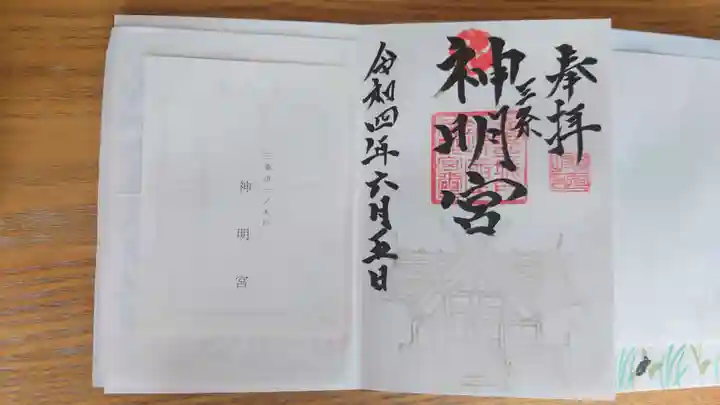 奉拝
三条
神明宮
令和四年六月五日
神明宮